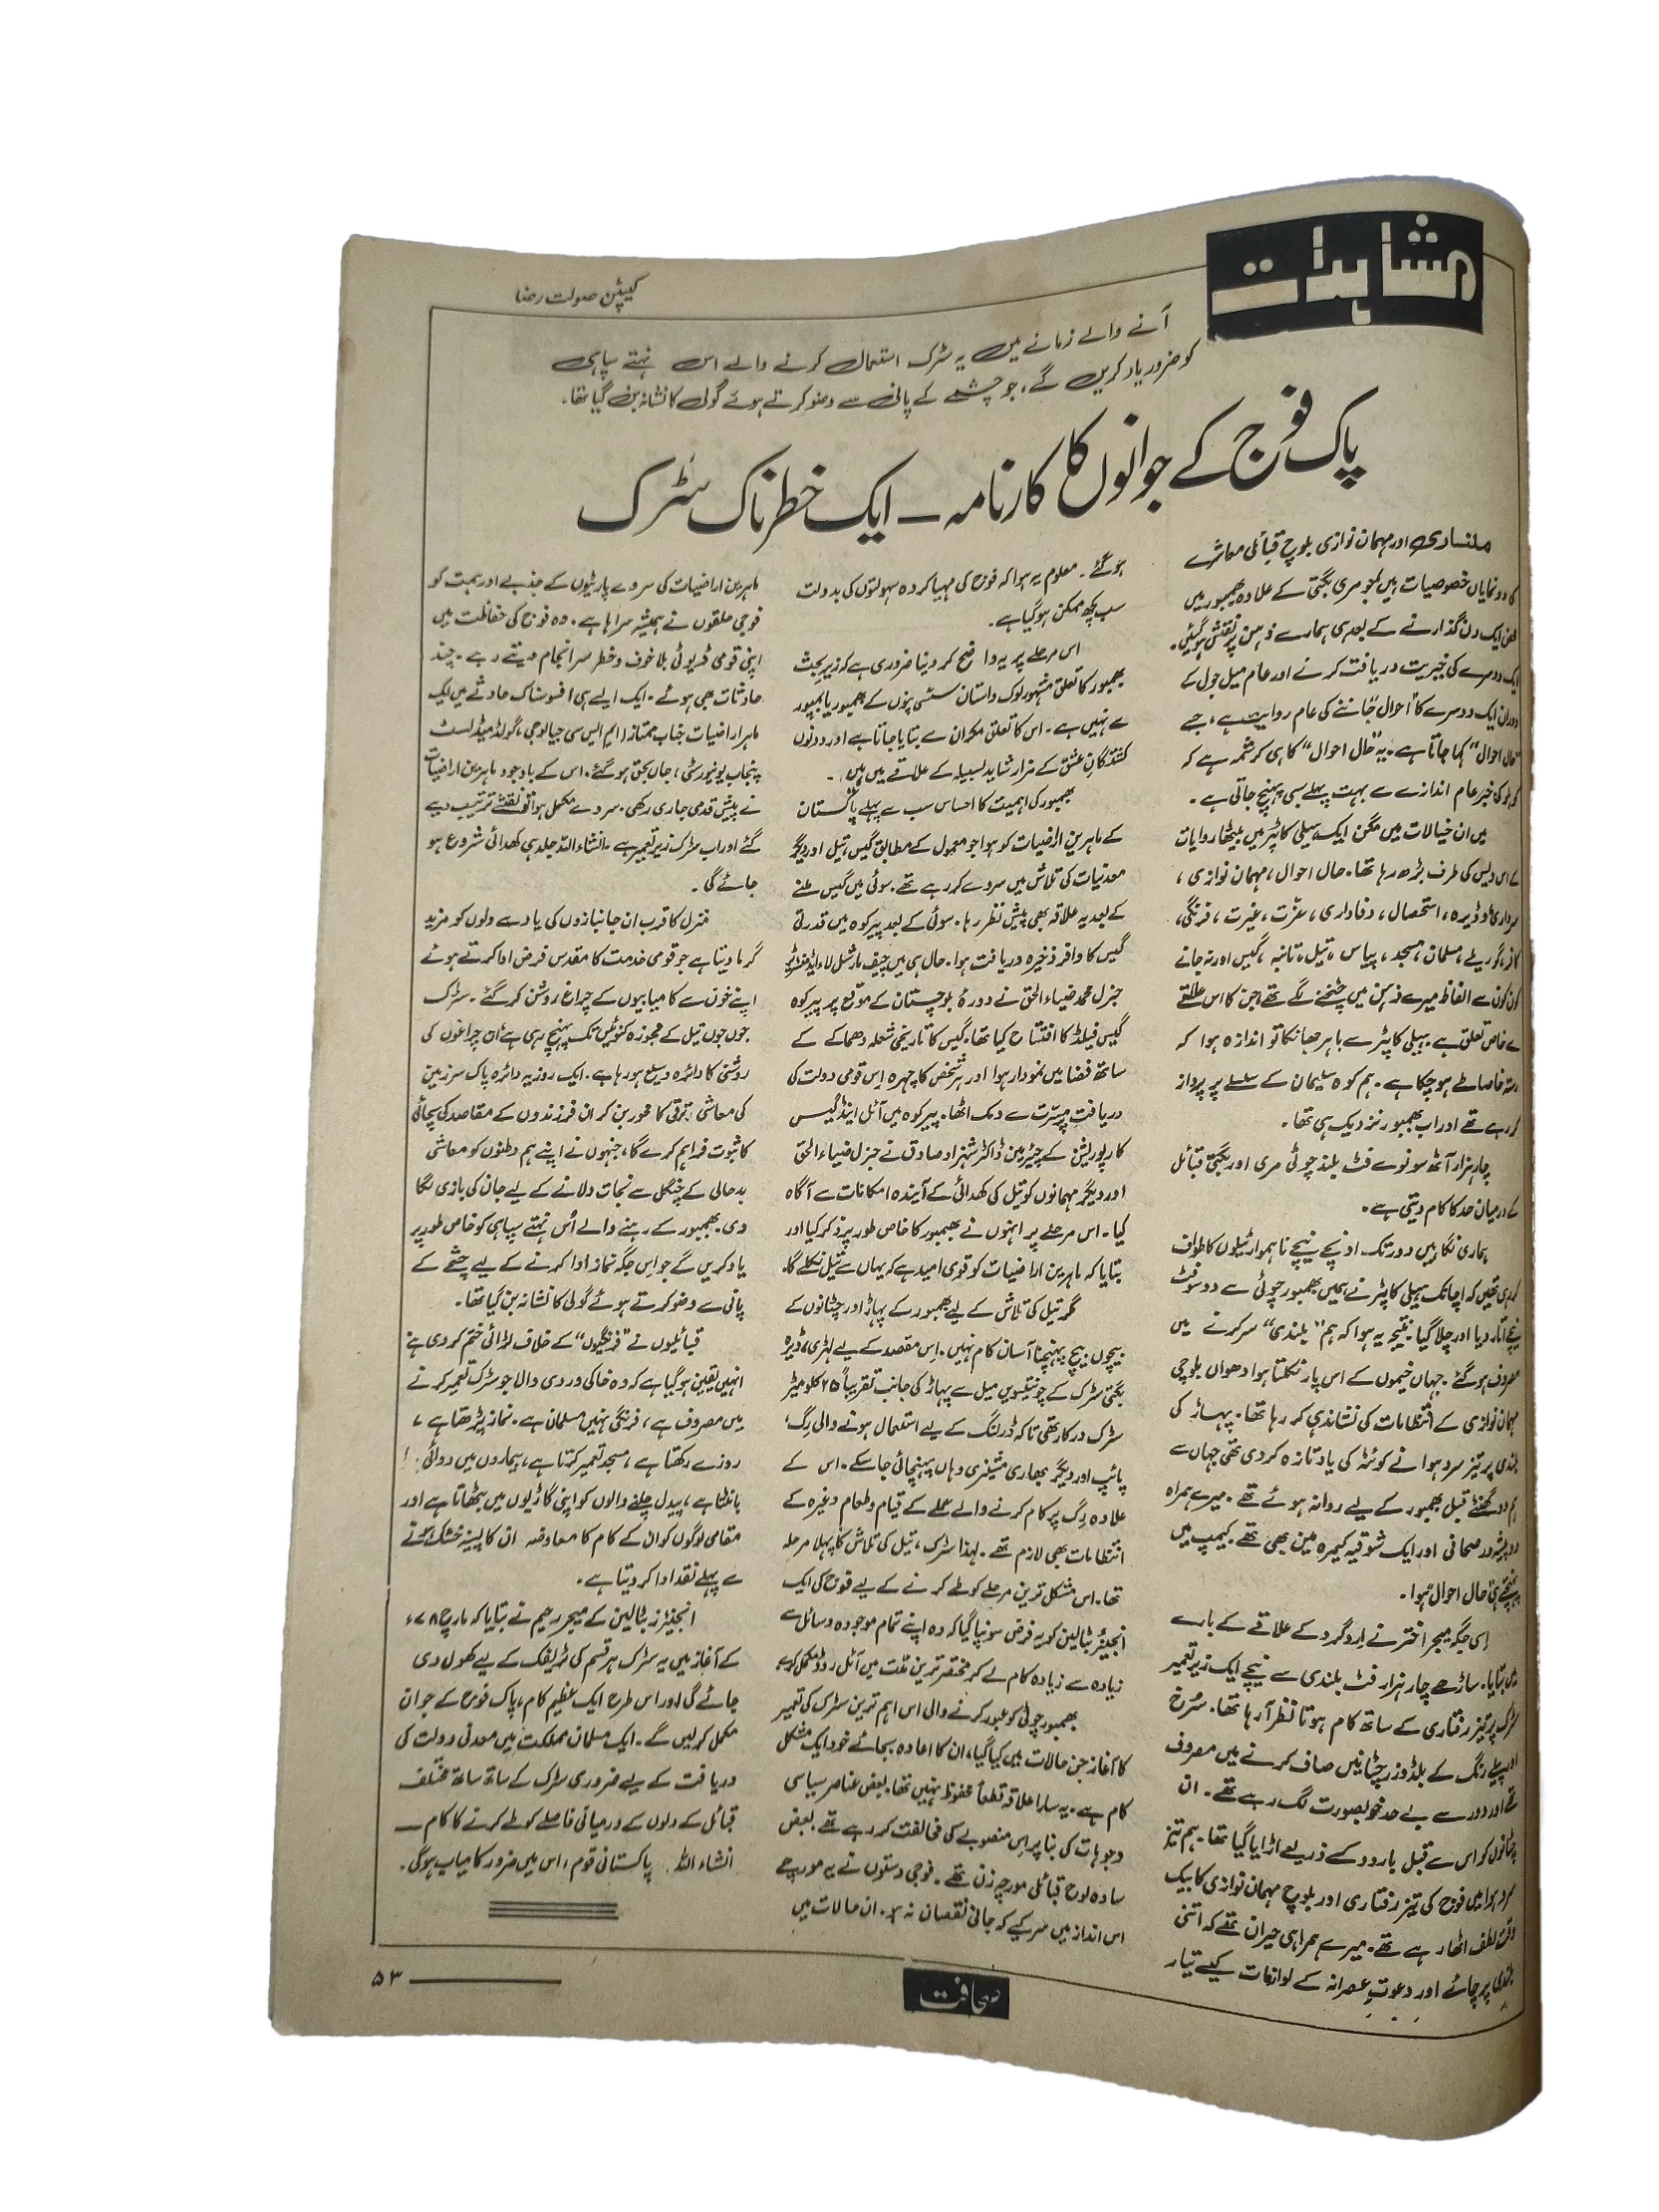 مشاہدات
کیپٹن صولت رضا
آنے والے زمانے میں یہ سڑک استعمال کرنے والے اس نہتے سپاہی
کو ضرور یاد کریں گے، جو چشمے کے پانی سے وضو کرتے ہوئے گولی کا نشانہ بن گیا تھا۔
پاک فوج کے جوانوں کا کارنامہ – ایک خطرناک سڑک
ملنساری اور مہمان نوازی بلوچ قبائلی معاشرے
کا دو نمایاں خصوصیات ہیں جو مری بگٹی کے علاوہ بھمبور میں
ایک دن گذارنے کے بعد ہی ہمارے ذہن پر نقش ہو گئیں۔
ایک دوسرے کی خیریت دریافت کرنے اور عام میل جول کے
دوران ایک دوسرے کا "احوال" جاننے کی عام روایت ہے، جسے
"حال احوال" کہا جاتا ہے۔ یہ "حال احوال" کا ہی کرشمہ ہے کہ
کوہلو کی خبر عام اندازے سے بہت پہلے سبی پہنچ جاتی ہے۔
میں ان خیالات میں مگن ایک ہیلی کاپٹر میں بیٹھا روایات
کے اس دیس کی طرف بڑھ رہا تھا۔ حال احوال، مہمان نوازی،
سرداری، وڈیرہ، استحصال، وفاداری، عزّت، غیرت، فرنگی،
کافر، گوریلے، مسلمان، مسجد، پیاس، تیل، تانبہ، گیس اور نہ جانے
کون کون سے الفاظ میرے ذہن میں چٹخنے لگے تھے، جن کا اس علاقے
سے خاص تعلق ہے۔ ہیلی کاپٹر سے باہر جھانکا تو اندازہ ہوا کہ
فاصلہ طے ہو چکا ہے۔ ہم کوہ سلیمان کے سلسلے پر پرواز
کر رہے تھے اور اب بھمبور نزدیک ہی تھا۔
چار ہزار آٹھ سو نوے فٹ بلند چوٹی مری اور بگٹی قبائل
کے درمیان حد کا کام دیتی ہے۔
ہماری نگاہیں دور تک اونچے نیچے ناہموار ٹیلوں کا طواف
کر رہی تھیں کہ اچانک ہیلی کاپٹر نے ہمیں بھمبور چوٹی سے دو سو فٹ
نیچے اتار دیا اور چلا گیا۔ نتیجہ یہ ہوا کہ ہم "بلندی" سر کرنے میں
مصروف ہو گئے۔ جہاں خیموں کے اس پار نکلتا ہوا دھواں بلوچی
مہمان نوازی کے انتظامات کی نشاندہی کر رہا تھا۔ پہاڑ کی
بلندی پر تیز سرد ہوا نے کوئٹہ کی یاد تازہ کر دی تھی جہاں سے
ہم دو گھنٹے قبل بھمبور کے لیے روانہ ہوئے تھے۔ میرے ہمراہ
دو پیشہ ور صحافی اور ایک شوقیہ کیمرہ مین بھی تھے۔ کیمپ میں
پہنچتے ہی حال احوال ہوا۔
اسی جگہ میجر اختر نے اردگرد کے علاقے کے بارے
میں بتایا۔ ساڑھے چار ہزار فٹ بلندی سے نیچے ایک زیر تعمیر
سڑک پر تیز رفتاری کے ساتھ کام ہوتا نظر آ رہا تھا۔ سُرخ
اور پیلے رنگ کے بلڈوزر چٹانیں صاف کرنے میں مصروف
تھے اور دور سے بے حد خوبصورت لگ رہے تھے۔ ان
چٹانوں کو اس سے قبل بارود کے ذریعے اڑایا گیا تھا۔ ہم تیز
سرد ہوا میں فوج کی تیز رفتاری اور بلوچ مہمان نوازی کا بیک
وقت لطف اٹھا رہے تھے۔ میرے ہمراہی حیران تھے کہ اتنی
بلندی پر چائے اور دعوتِ عصرانہ کے لوازمات کیسے تیار
ہو گئے۔ معلوم یہ ہوا کہ فوج کی مہیا کردہ سہولتوں کی بدولت
سب کچھ ممکن ہو گیا ہے۔
اس مرحلے پر یہ واضح کر دینا ضروری ہے کہ زیر بحث
بھمبور کا تعلق مشہور لوک داستان سسّی پنوں کے بھمبور یا بھنبور
سے نہیں ہے۔ اس کا تعلق مکران سے بتایا جاتا ہے اور دونوں
کشتگانِ عشق کے مزار شاید لسبیلہ کے علاقے میں ہیں۔
بھمبور کی اہمیت کا احساس سب سے پہلے پاکستان
کے ماہرین اراضیات کو ہوا جو معمول کے مطابق گیس، تیل اور دیگر
معدنیات کی تلاش میں سروے کر رہے تھے۔ سوئی میں گیس ملنے
کے بعد یہ علاقہ بھی پیش نظر رہا۔ سوئی کے بعد پیرکوہ میں قدرتی
گیس کا وافر ذخیرہ دریافت ہوا۔ حال ہی میں چیف مارشل لاء ایڈمنسٹریٹر
جنرل محمد ضیاء الحق نے دورۂ بلوچستان کے موقع پر پیرکوہ
گیس فیلڈ کا افتتاح کیا تھا۔ گیس کا تاریخی شعلہ دھماکے کے
ساتھ فضا میں نمودار ہوا اور ہر شخص کا چہرہ اس قومی دولت کی
دریافت پر مسّرت سے دمک اٹھا۔ پیرکوہ میں آئل اینڈ گیس
کارپوریشن کے چیئرمین ڈاکٹر شہزاد صادق نے جنرل ضیاء الحق
اور دیگر مہمانوں کو تیل کی کھدائی کے آیندہ امکانات سے آگاہ
کیا۔ اس مرحلے پر انہوں نے بھمبور کا خاص طور پر ذکر کیا اور
بتایا کہ ماہرین اراضیات کو قوی امید ہے کہ یہاں سے تیل نکلے گا۔
مگر تیل کی تلاش کے لیے بھمبور کے پہاڑ اور چٹانوں کے
بیچوں بیچ پہنچنا آسان کام نہیں۔ اس مقصد کے لیے لہڑی، ڈیرہ
بگٹی سڑک کے چونتیسویں میل سے پہاڑ کی جانب تقریباً ۲۵ کلومیٹر
سڑک درکار تھی تاکہ ڈرلنگ کے لیے استعمال ہونے والی رِگ،
پائپ اور دیگر بھاری مشینری وہاں پہنچائی جا سکے۔ اس کے
علاوہ رِگ پر کام کرنے والے عملے کے قیام و طعام وغیرہ کے
انتظامات بھی لازم تھے۔ لہٰذا سڑک، تیل کی تلاش کا پہلا مرحلہ
تھا۔ اس مشکل ترین مرحلے کو طے کرنے کے لیے فوج کی ایک
انجینئر بٹالین کو یہ فرض سونپا گیا کہ وہ اپنے تمام موجودہ وسائل سے
زیادہ سے زیادہ کام لے کر مختصر ترین مدّت میں آئل روڈ مکمل کرے۔
بھمبور چوٹی کو عبور کرنے والی اس اہم ترین سڑک کی تعمیر
کا آغاز جن حالات میں کیا گیا، ان کا اعادہ بجائے خود ایک مشکل
کام ہے۔ یہ سارا علاقہ قطعاً محفوظ نہیں تھا۔ بعض عناصر سیاسی
وجوہات کی بنا پر اس منصوبے کی مخالفت کر رہے تھے۔ بعض
سادہ لوح قبائلی مورچہ زن تھے۔ فوجی دستوں نے یہ مورچے
اس انداز میں سر کیے کہ جانی نقصان نہ ہو۔ ان حالات میں
ماہرین اراضیات کی سروے پارٹیوں کے جذبے اور ہمت کو
فوجی حلقوں نے ہمیشہ سراہا ہے۔ وہ فوج کی حفاظت میں
اپنی قومی ڈیوٹی بلا خوف و خطر سرانجام دیتے رہے۔ چند
حادثات بھی ہوئے۔ ایک ایسے ہی افسوسناک حادثے میں ایک
ماہر اراضیات جناب ممتاز (ایم ایس سی جیالوجی، گولڈ میڈلسٹ
پنجاب یونیورسٹی، جاں بحق ہو گئے۔ اس کے باوجود ماہرین اراضیات
نے پیش قدمی جاری رکھی۔ سروے مکمل ہوا تو نقشے ترتیب دیے
گئے اور اب سڑک زیر تعمیر ہے۔ انشاء اللہ جلد ہی کھدائی شروع ہو
جائے گی۔
منزل کا قرب ان جانبازوں کی یاد سے دلوں کو مزید
گرما دیتا ہے جو قومی خدمت کا مقدس فرض ادا کرتے ہوئے
اپنے خون سے کامیابیوں کے چراغ روشن کر گئے۔ سڑک
جوں جوں تیل کے مجوزہ کنوئیں تک پہنچ رہی ہے ان چراغوں کی
روشنی کا دائرہ وسیع ہو رہا ہے۔ ایک روز یہ دائرہ پاک سرزمین
کی معاشی ترقی کا محور بن کر ان فرزندوں کے مقاصد کی سچائی
کا ثبوت فراہم کرے گا، جنہوں نے اپنے ہم وطنوں کو معاشی
بدحالی کے چنگل سے نجات دلانے کے لیے جان کی بازی لگا
دی۔ بھمبور کے رہنے والے اُس نہتے سپاہی کو خاص طور پر
یاد کریں گے جو اس جگہ نماز ادا کرنے کے لیے چشمے کے
پانی سے وضو کرتے ہوئے گولی کا نشانہ بن گیا تھا۔
قبائلیوں نے "فرنگیوں" کے خلاف لڑائی ختم کر دی ہے
انہیں یقین ہو گیا ہے کہ وہ خاکی وردی والا جو سڑک تعمیر کرنے
میں مصروف ہے، فرنگی نہیں مسلمان ہے۔ نماز پڑھتا ہے،
روزے رکھتا ہے، مسجد تعمیر کرتا ہے، بیماروں میں دوائی
بانٹتا ہے، پیدل چلنے والوں کو اپنی گاڑیوں میں بٹھاتا ہے اور
مقامی لوگوں کو ان کے کام کا معاوضہ ان کا پسینہ خشک ہونے
سے پہلے نقد ادا کر دیتا ہے۔
انجینئرز بٹالین کے میجر رحیم نے بتایا کہ مارچ ۷۸ء
کے آغاز میں یہ سڑک ہر قسم کی ٹریفک کے لیے کھول دی
جائے گی اور اس طرح ایک عظیم کام، پاک فوج کے جوان
مکمل کر لیں گے۔ ایک مسلمان مملکت میں معدنی دولت کی
دریافت کے لیے ضروری سڑک کے ساتھ ساتھ مختلف
قبائل کے دلوں کے درمیانی فاصلے کو طے کرنے کا کام —
انشاء اللہ پاکستانی قوم، اس میں ضرور کامیاب ہوگی۔
صحافت
۵۳